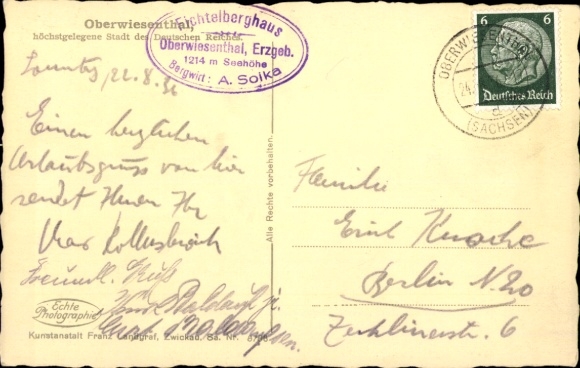 Oberwiesenthal,
höchstgelegene Stadt des Deutschen Reiches.
Fichtelberghaus
Oberwiesenthal, Erzgeb.
1214 m Seehöhe
Bergwirt: A. Soika
6 6
Deutsches Reich
OBERWIESENTHAL
(SACHSEN)
Sonntag, 22.8.36
Einen herzlichen
Urlaubsgruss von hier
sendet Ihnen Ihr
Max
Freundl. Grüße
Alle Rechte vorbehalten.
Familie
Erich
Berlin N. 20
Zechlinerstr. 6
Echte
Photographie
Kunstanstalt Franz Landgraf, Zwickau, Sa. Nr.